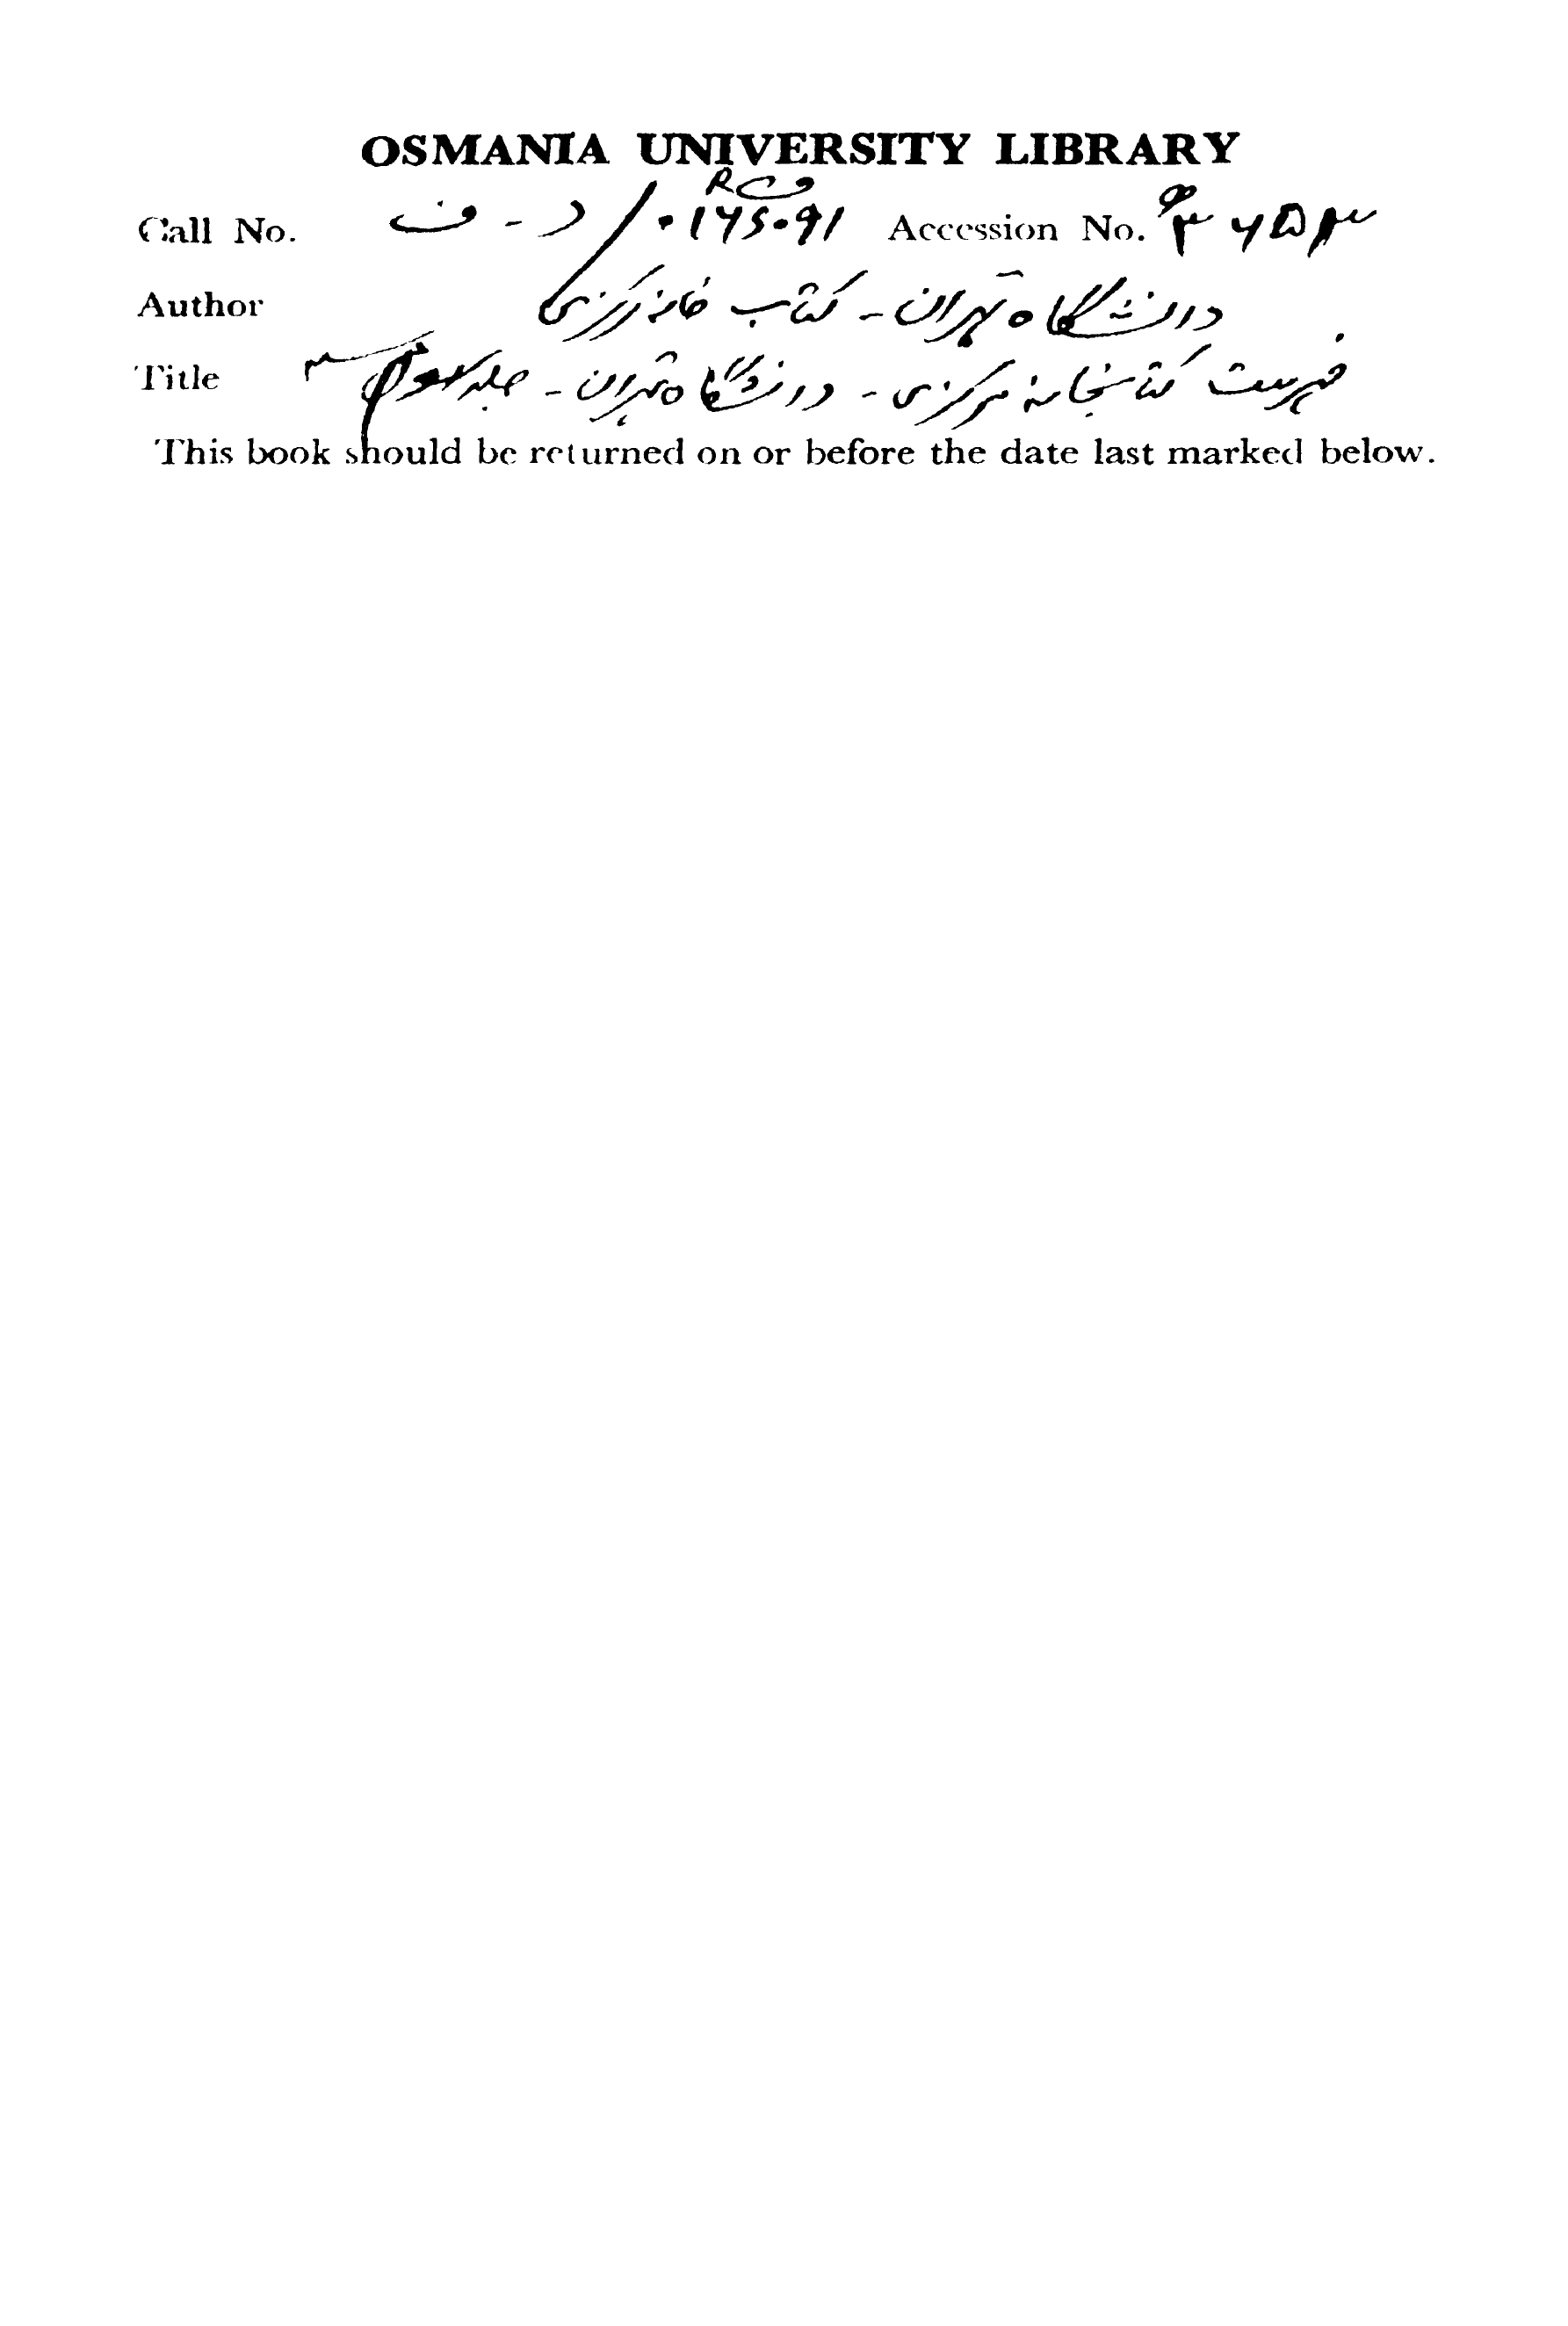 OSMANIA UNIVERSITY LIBRARY
Call No. ۰۱۷۵۰۹۱ / د - ف Accession No.
Author دانشگاه تهران - کتاب خانہ مرکزی
Title فہرست کتابخانہ مرکزی - دانشگاه تہران - جلد
This book should be returned on or before the date last marked below.